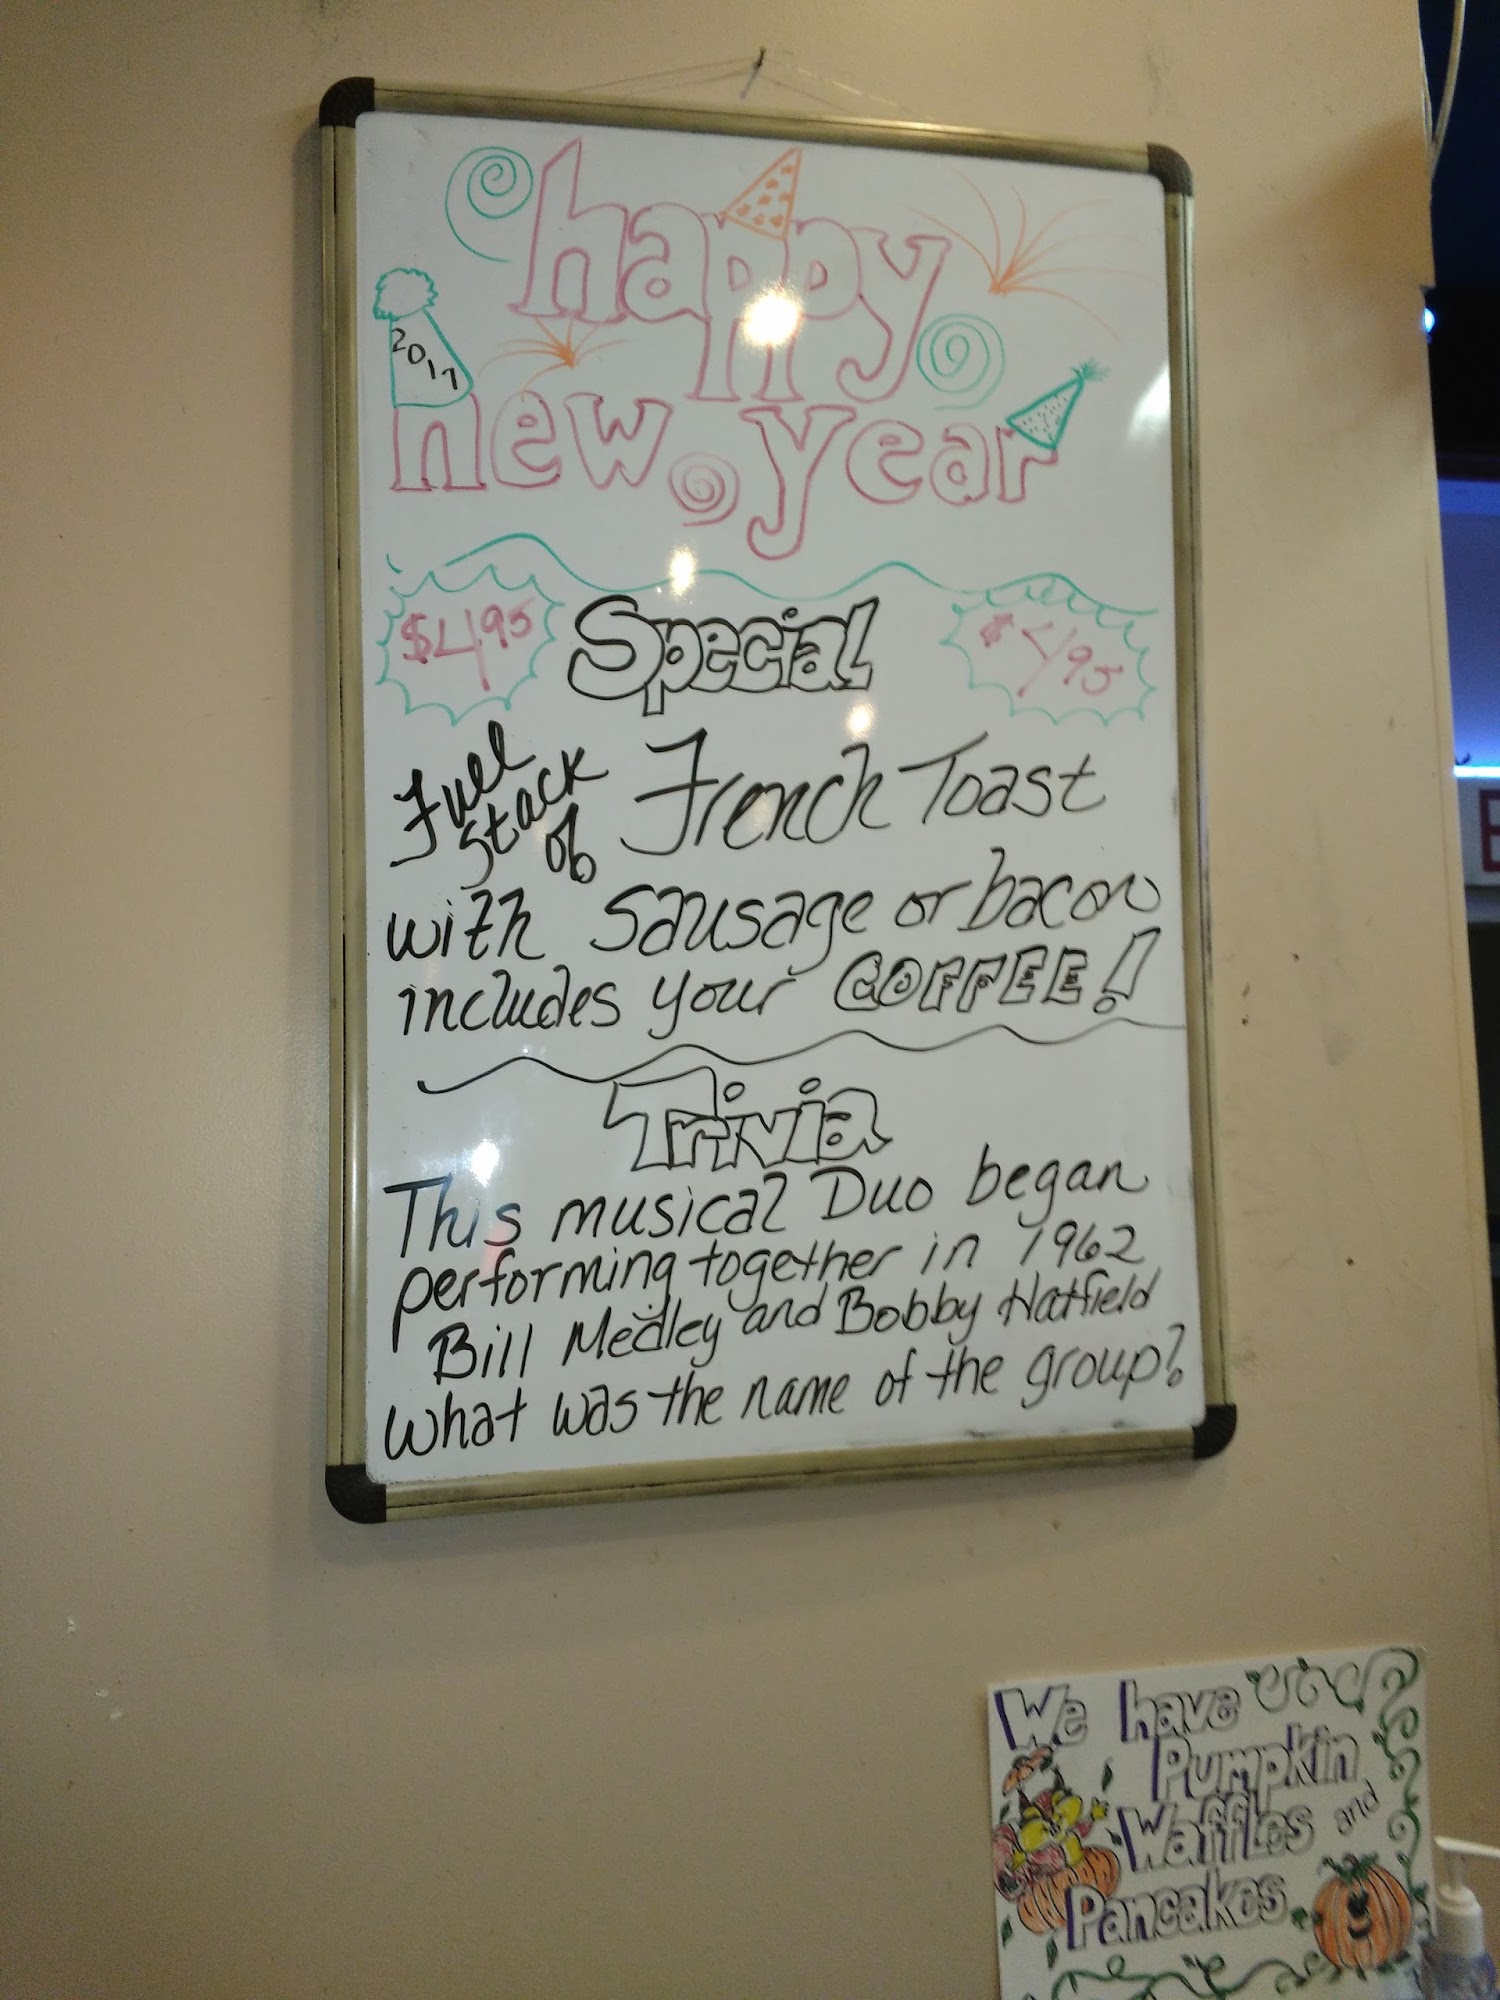 happy
2017
new year
$4.95 Special $4.95
Fuel
stack
of French Toast
with Sausage or bacon
includes your COFFEE!
Trivia
This musical Duo began
performing together in 1962
Bill Medley and Bobby Hatfield
what was the name of the group?
We have
Pumpkin
Waffles and
Pancakes